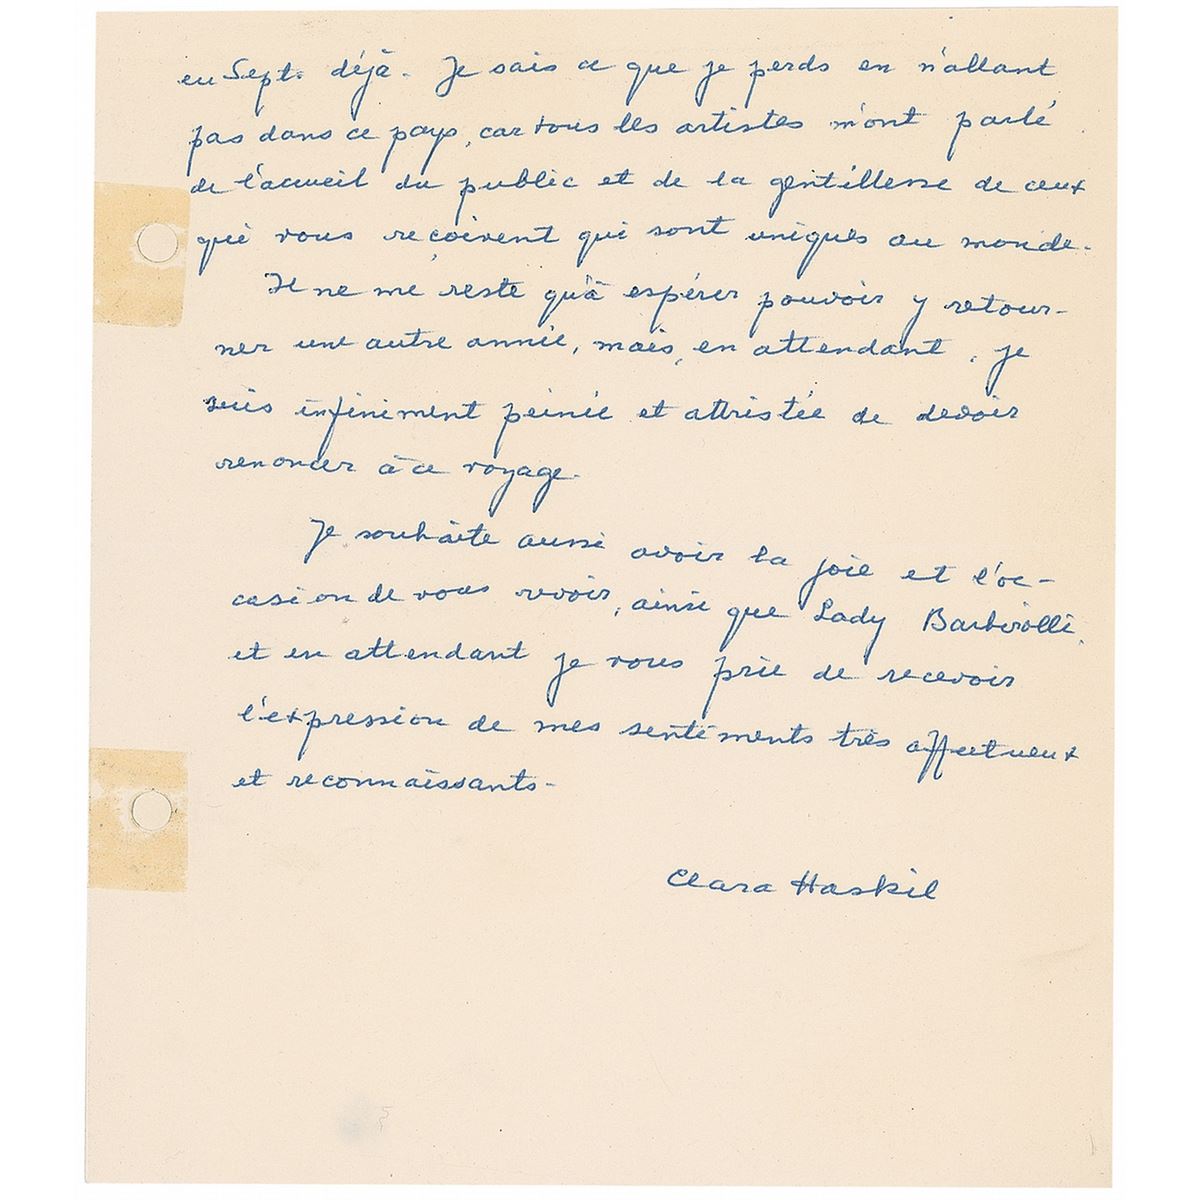 en Sept. déjà. Je sais ce que je perds en n'allant
pas dans ce pays, car tous les artistes m'ont parlé
de l'accueil du public et de la gentillesse de ceux
qui vous reçoivent qui sont uniques au monde.
Il ne me reste qu'à espérer pouvoir y retour-
ner une autre année, mais, en attendant, je
suis infiniment peinée et attristée de devoir
renoncer à ce voyage.
Je souhaite aussi avoir la joie et l'oc-
casion de vous revoir, ainsi que Lady Barbirolli,
et en attendant je vous prie de recevoir
l'expression de mes sentiments très affectueux
et reconnaissants.
Clara Haskil